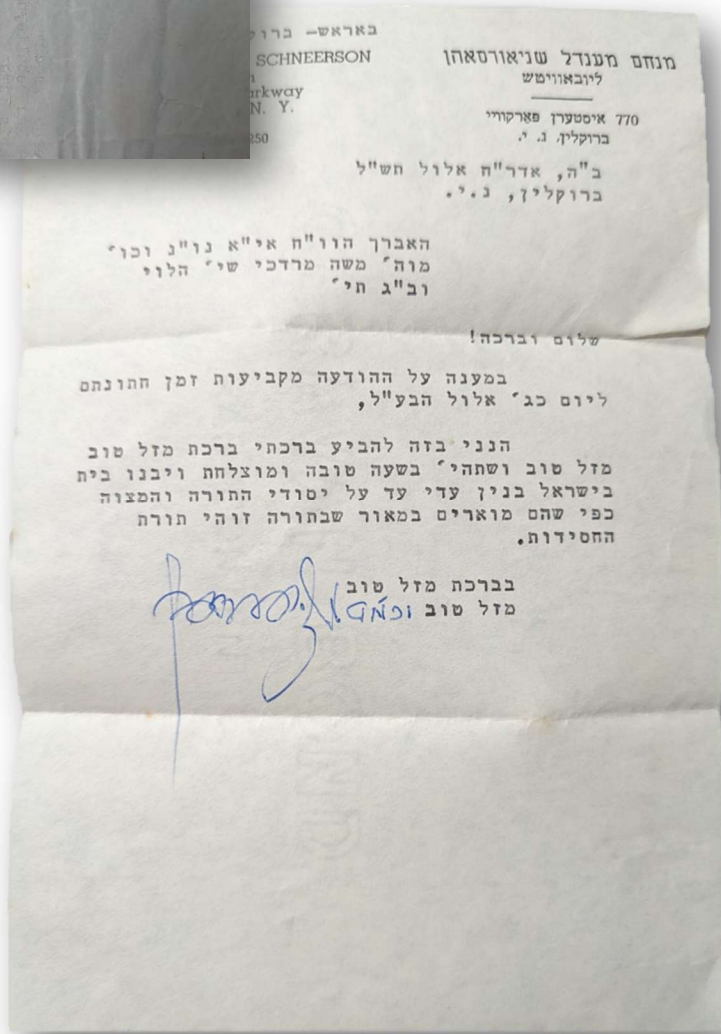 באראש- ברוק
SCHNEERSON
rkway
N. Y.
250
מנחם מענדל שניאורסאהן
ליובאוויטש
770 איסטערן פארקוויי
ברוקלין, נ. י.
ב"ה, אדר"ח אלול תש"ל
ברוקלין, נ.י.
האברך הוו"ח אי"א נו"נ וכו'
מוה' משה מרדכי שי' הלוי
וב"ג תי'
שלום וברכה!
במענה על ההודעה מקביעות זמן חתונתם
ליום כג' אלול הבע"ל,
הנני בזה להביע ברכתי ברכת מזל טוב
מזל טוב ושתהי' בשעה טובה ומוצלחת ויבנו בית
בישראל בנין עדי עד על יסודי התורה והמצוה
כפי שהם מוארים במאור שבתורה זוהי תורת
החסידות.
בברכת מזל טוב
מזל טוב